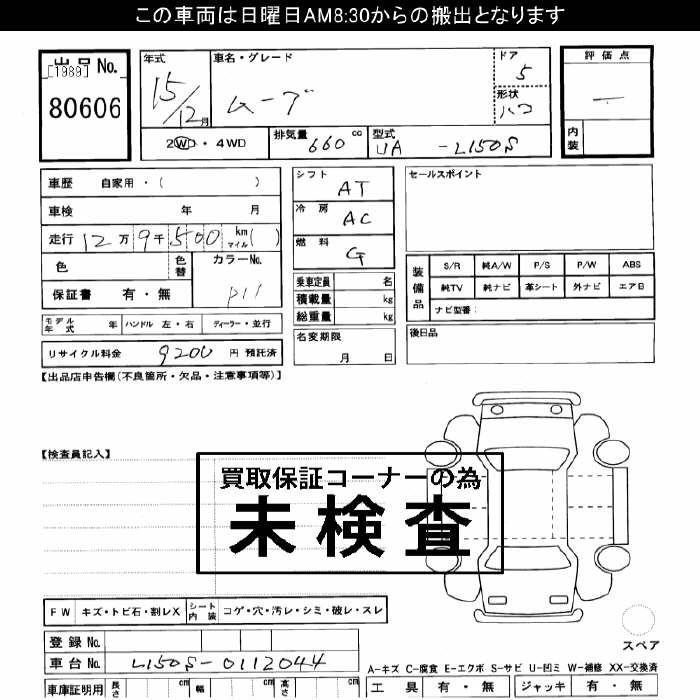 この車両は日曜日AM8:30からの搬出となります
出品 No.
[1989]
80606
年式
15/12月
車名・グレード
ムーブ
ドア
5
形状
ハコ
2WD・4WD
排気量 660 cc
型式
UA -L150S
評価点
内装
車歴 自家用・( )
車検 年 月
走行 12万9千500 km マイル( )
色
色替
カラーNo.
P11
保証書 有・無
モデル年式 年
ハンドル 左・右
ディーラー・並行
リサイクル料金 9200 円 預託済
シフト
AT
冷房
AC
燃料
G
乗車定員 名
積載量 kg
総重量 kg
名変期限
月 日
セールスポイント
装備品
S/R 純A/W P/S P/W ABS
純TV 純ナビ 革シート 外ナビ エアB
ナビ型番:
後日品
【出品店申告欄(不良箇所・欠品・注意事項等)】
【検査員記入】
買取保証コーナーの為
未検査
FW キズ・トビ石・割レX
シート内装 コゲ・穴・汚レ・シミ・破レ・スレ
登録 No.
車台 No. L150S-0112044
車庫証明用 長さ cm 幅 cm 高さ cm
スペア
A-キズ C-腐食 E-エクボ S-サビ U-凹ミ W-補修 XX-交換済
工具 有・無 ジャッキ 有・無